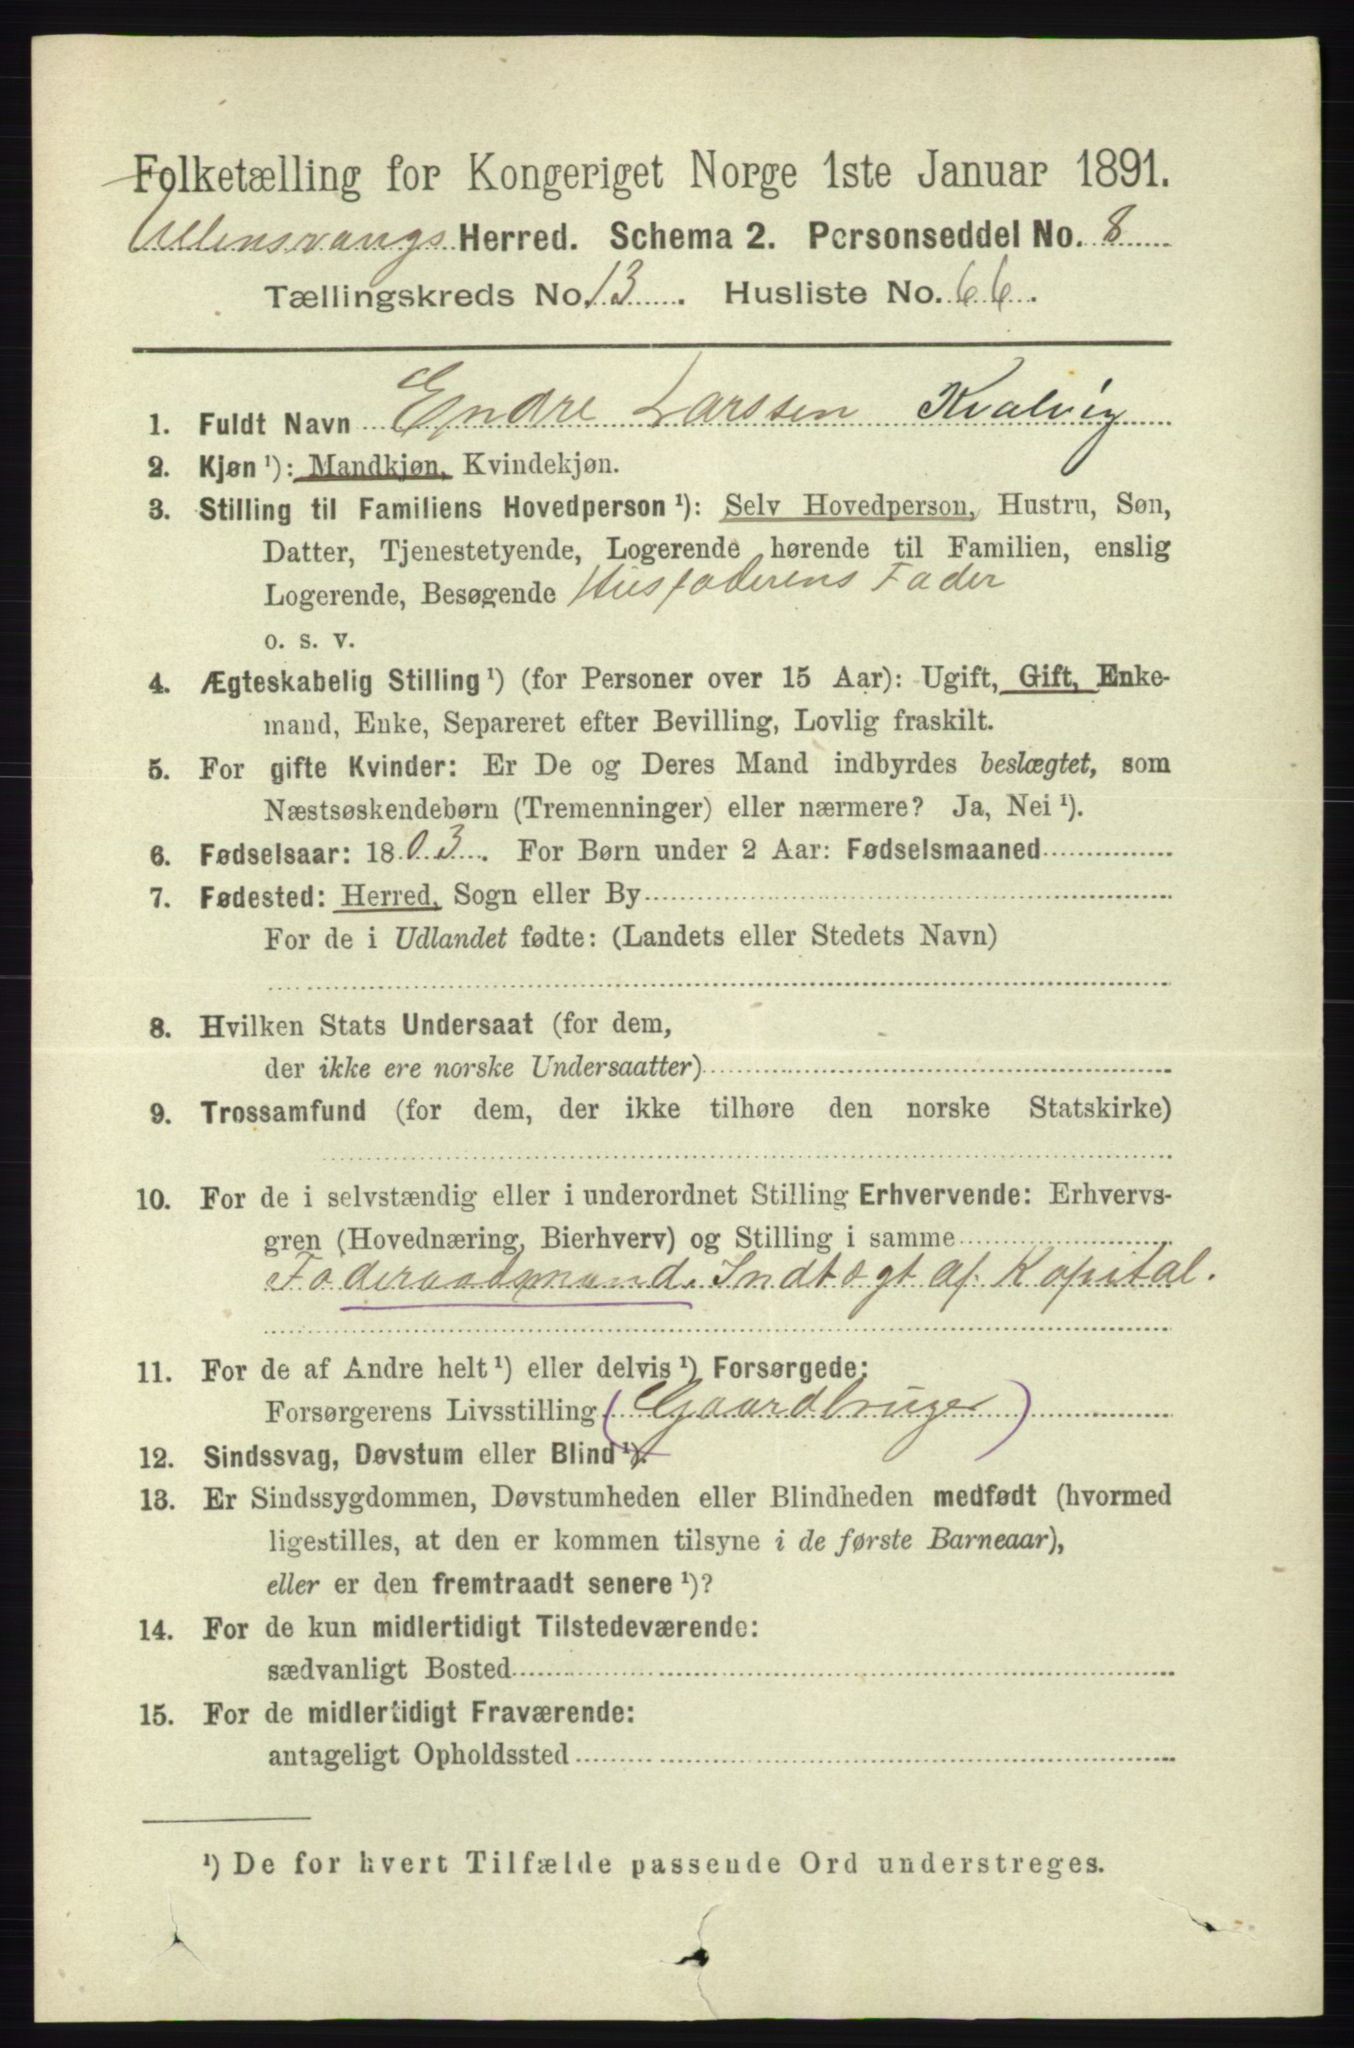 Folketælling for Kongeriget Norge 1ste Januar 1891.
Ullensvangs Herred. Schema 2. Personseddel No. 8
Tællingskreds No. 13. Husliste No. 66.
1. Fuldt Navn Endre Larssen Kvalvig
2. Kjøn ¹): Mandkjøn, Kvindekjøn.
3. Stilling til Familiens Hovedperson ¹): Selv Hovedperson, Hustru, Søn,
Datter, Tjenestetyende, Logerende hørende til Familien, enslig
Logerende, Besøgende Husfaderens Fader
o. s. v.
4. Ægteskabelig Stilling ¹) (for Personer over 15 Aar): Ugift, Gift, Enke-
mand, Enke, Separeret efter Bevilling, Lovlig fraskilt.
5. For gifte Kvinder: Er De og Deres Mand indbyrdes beslægtet, som
Næstsøskendebørn (Tremenninger) eller nærmere? Ja, Nei ¹).
6. Fødselsaar: 1803. For Børn under 2 Aar: Fødselsmaaned
7. Fødested: Herred, Sogn eller By
For de i Udlandet fødte: (Landets eller Stedets Navn)
8. Hvilken Stats Undersaat (for dem,
der ikke ere norske Undersaatter)
9. Trossamfund (for dem, der ikke tilhøre den norske Statskirke)
10. For de i selvstændig eller i underordnet Stilling Erhvervende: Erhvervs-
gren (Hovednæring, Bierhverv) og Stilling i samme
Foderaadsmand. Indtægt af Kapital.
11. For de af Andre helt ¹) eller delvis ¹) Forsørgede:
Forsørgerens Livsstilling (Gaardbruger)
12. Sindssvag, Døvstum eller Blind ¹).
13. Er Sindssygdommen, Døvstumheden eller Blindheden medfødt (hvormed
ligestilles, at den er kommen tilsyne i de første Barneaar),
eller er den fremtraadt senere ¹)?
14. For de kun midlertidigt Tilstedeværende:
sædvanligt Bosted
15. For de midlertidigt Fraværende:
antageligt Opholdssted
¹) De for hvert Tilfælde passende Ord understreges.